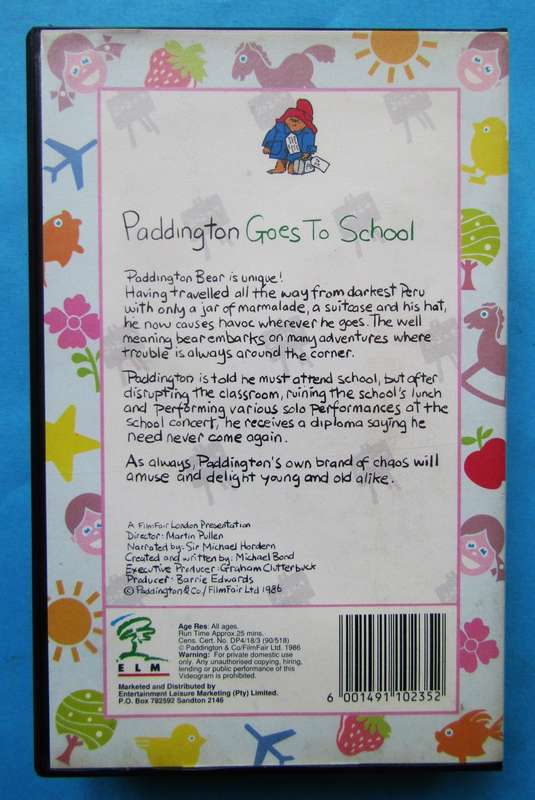 Paddington Goes To School
Paddington Bear is unique!
Having travelled all the way from darkest Peru
with only a jar of marmalade, a suitcase and his hat,
he now causes havoc wherever he goes. The well
meaning bear embarks on many adventures where
trouble is always around the corner.
Paddington is told he must attend school, but after
disrupting the classroom, ruining the school's lunch
and performing various solo performances at the
school concert, he receives a diploma saying he
need never come again.
As always, Paddington's own brand of chaos will
amuse and delight young and old alike.
A FilmFair London Presentation
Director: Martin Pullen
Narrated by: Sir Michael Hordern
Created and written by: Michael Bond
Executive Producer: Graham Clutterbuck
Producer: Barrie Edwards
© Paddington & Co/FilmFair Ltd 1986
ELM
Age Res: All ages.
Run Time Approx.25 mins.
Cens. Cert. No. DP4/18/3 (90/518)
© Paddington & Co/FilmFair Ltd. 1986
Warning: For private domestic use
only. Any unauthorised copying, hiring,
lending or public performance of this
Videogram is prohibited.
Marketed and Distributed by
Entertainment Leisure Marketing (Pty) Limited.
P.O. Box 782592 Sandton 2146
6 001491 102352